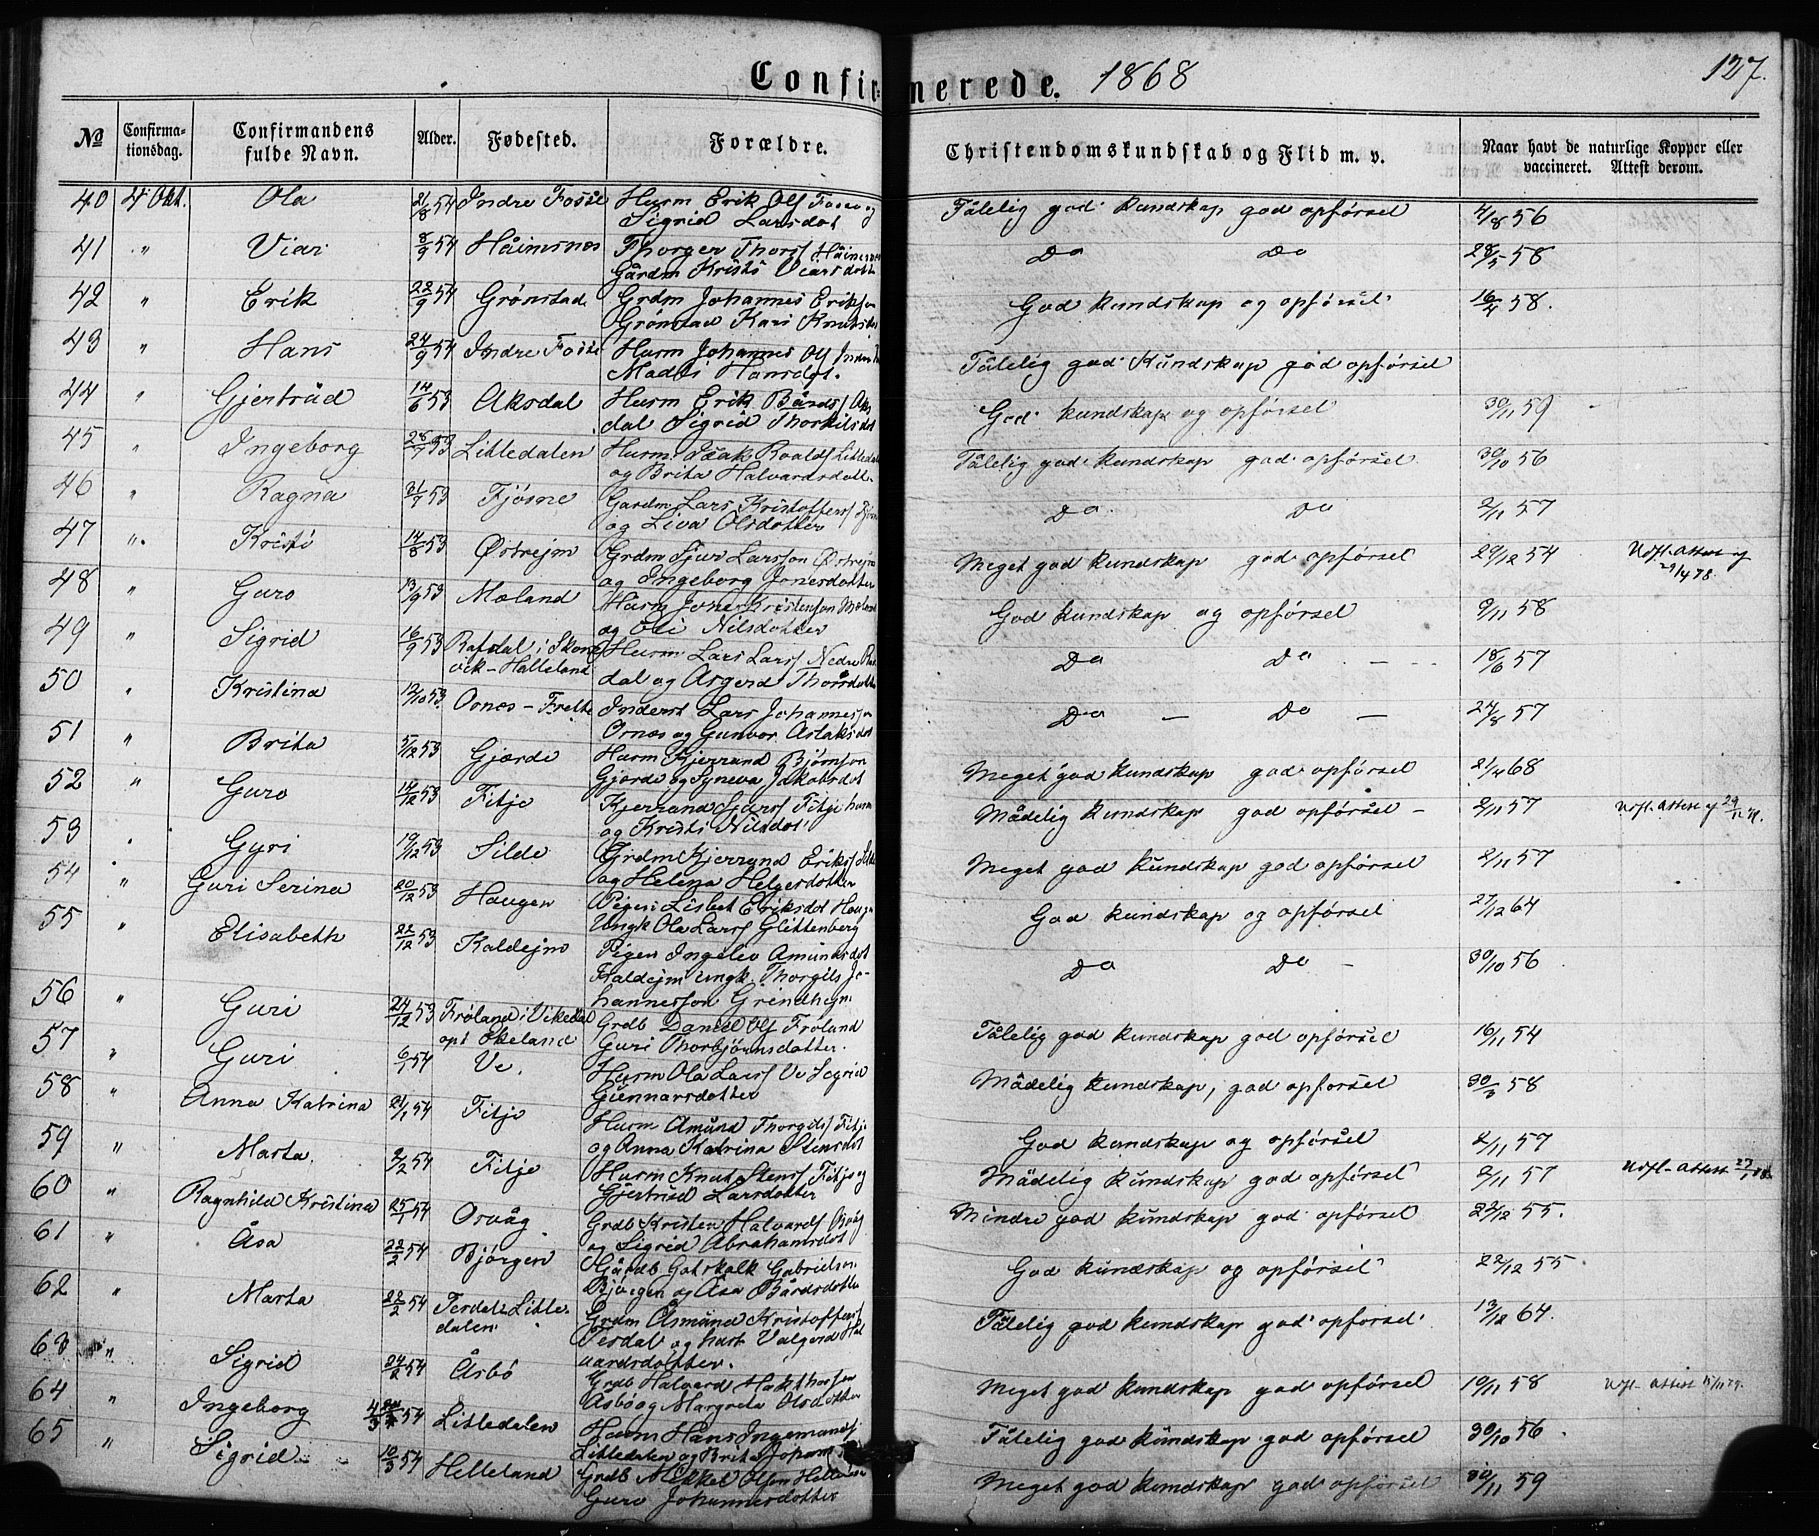 Confirmerede. 1868
127.
№ Confirmationsdag. Confirmandens fulde Navn. Alder. Fødested. Forældre. Christendomskundskab og Flid m. v. Naar havt de naturlige Kopper eller vaccineret. Attest derom.
40 4 Okt. Ola 21/8 54 Indre Fosse Husm Erik Ols Fosse og Sigrid Larsdot Tålelig god kundskap god opførsel 4/8 56
41 " Viar 8/9 54 Håimsnes Thorger Thors Håimsnes Gårdm Kristi Viarsdotter Do Do 28/5 58
42 " Erik 22/9 54 Grønstad Grdm Johannes Erikson Grønstad Kari Knutsdot God kundskap og opførsel 16/4 58.
43 " Hans 24/9 54 Indre Fosse Husm Johannes Ols Indre Madli Hansdot. Tålelig god kundskap god opførsel
44 " Gjertrud 14/6 53 Aksdal Husm Erik Bårds Aksdal Sigrid Thorkilsdot God kundskap og opførsel 30/11 59
45 " Ingeborg 28/7 53 Litledalen Husm Isak Roalds Litledal og Brita Halvardsdotter Tålelig god kundskap god opførsel 30/10 56
46 " Ragna 31/7 53 Fjøsne Gardm Lars Kristoffers Fjøsne og Liva Olsdotter Do Do 2/11 57
47 " Kristi 14/8 53 Østrejm Grdm Sjur Larsson Østrejm og Ingeborg Jonesdotter Meget god kundskap god opførsel 29/12 54 Udst. Attest 29/4 78.
48 " Guro 13/9 53 Mæland Husm Jone Kristenson Mæland og Eli Nilsdotter God kundskap og opførsel 9/11 58
49 " Sigrid 16/9 53 Rafdal i Skonevik - Halleland Husm Lars Lars Nedre Rafdal og Asgerd Thorsdotter Do Do 18/6 57
50 " Kristina 12/10 53 Ornes - Frette Inderst Lars Johannesson Ornes og Gunvor Aslaksdot Do Do 24/8 57
51 " Brita 5/12 53 Gjærde Husm Kjerrand Bjørnson Gjærde og Syneva Jakobsdot Meget god kundskap god opførsel 21/4 68
52 " Guro 14/12 53 Fitje Kjerrand Sjurs Fitje husm og Kristi Nilsdot Mådelig kundskap god opførsel 2/11 57 Udst. Attest
53 " Gyri 19/12 53 Silde Grdm Kjerrand Eriks Silde og Helena Helgesdotter Meget god kundskap god opførsel 2/11 57
54 " Guri Serina 20/12 53 Haugen Pigen Lisbet Eriksdot Haugen Ungk Ola Lars Glittenberg God kundskap og opførsel 27/12 64
55 " Elisabeth 22/12 53 Kaldejm Pigen Ingelev Amundsdot Kaldejm ungk Thorgils Johannesson Grindhejm Do Do 30/10 56
56 " Guri 24/12 53 Frøland i Vikedal Ekeland Grdb Daniel Ols Frøland Guri Thorbjørnsdotter. Tålelig god kundskap god opførsel 16/11 54
57 " Guri 6/1 54 Ve. Husm Ola Lars Ve Sigrid Gunnarsdotter Mådelig kundskap, god opførsel 30/5 58
58 " Anna Katrina 21/1 54 Fitje Husm Amund Thorgils Fitje og Anna Katrina Stensdot God kundskap og opførsel 2/11 57
59 " Marta. 2/2 54 Fitje Husm Knut Stens Fitje og Gjertrud Larsdotter Mådelig kundskap god opførsel 2/11 57 Udst. Attest
60 " Ragnhild Kristina 25/1 54 Osvåg Grdb Kristen Halvards og Sigrid Abrahamsdot Mindre god kundskap god opførsel 24/12 55.
61 " Åsa 22/2 54 Bjørgen Gårdb Gotskalk Gabrielson Bjørgen og Åsa Bårdsdotter God kundskap og opførsel 22/12 55
62 " Marta 22/2 54 Tesdal Litledalen Grdm Åsmund Kristoffers Tesdal og hust Valgerd Halvardsdotter. Tålelig god kundskap god opførsel 13/12 64.
63 " Sigrid 24/2 54 Åsbø Grdb Halvard Åsbø og Margreta Olsdotter Meget god kundskap god opførsel 10/11 58 Udst. Attest
64 " Ingeborg 4/3 54 Litledalen Husm Hans Ingemunds Litledalen og Brita Tålelig god kundskap god opførsel 30/10 56
65 " Sigrid 10/3 54 Helleland Grdb Mikkel Olson Helleland Guro Johannesdotter Meget god kundskap god opførsel 30/11 59